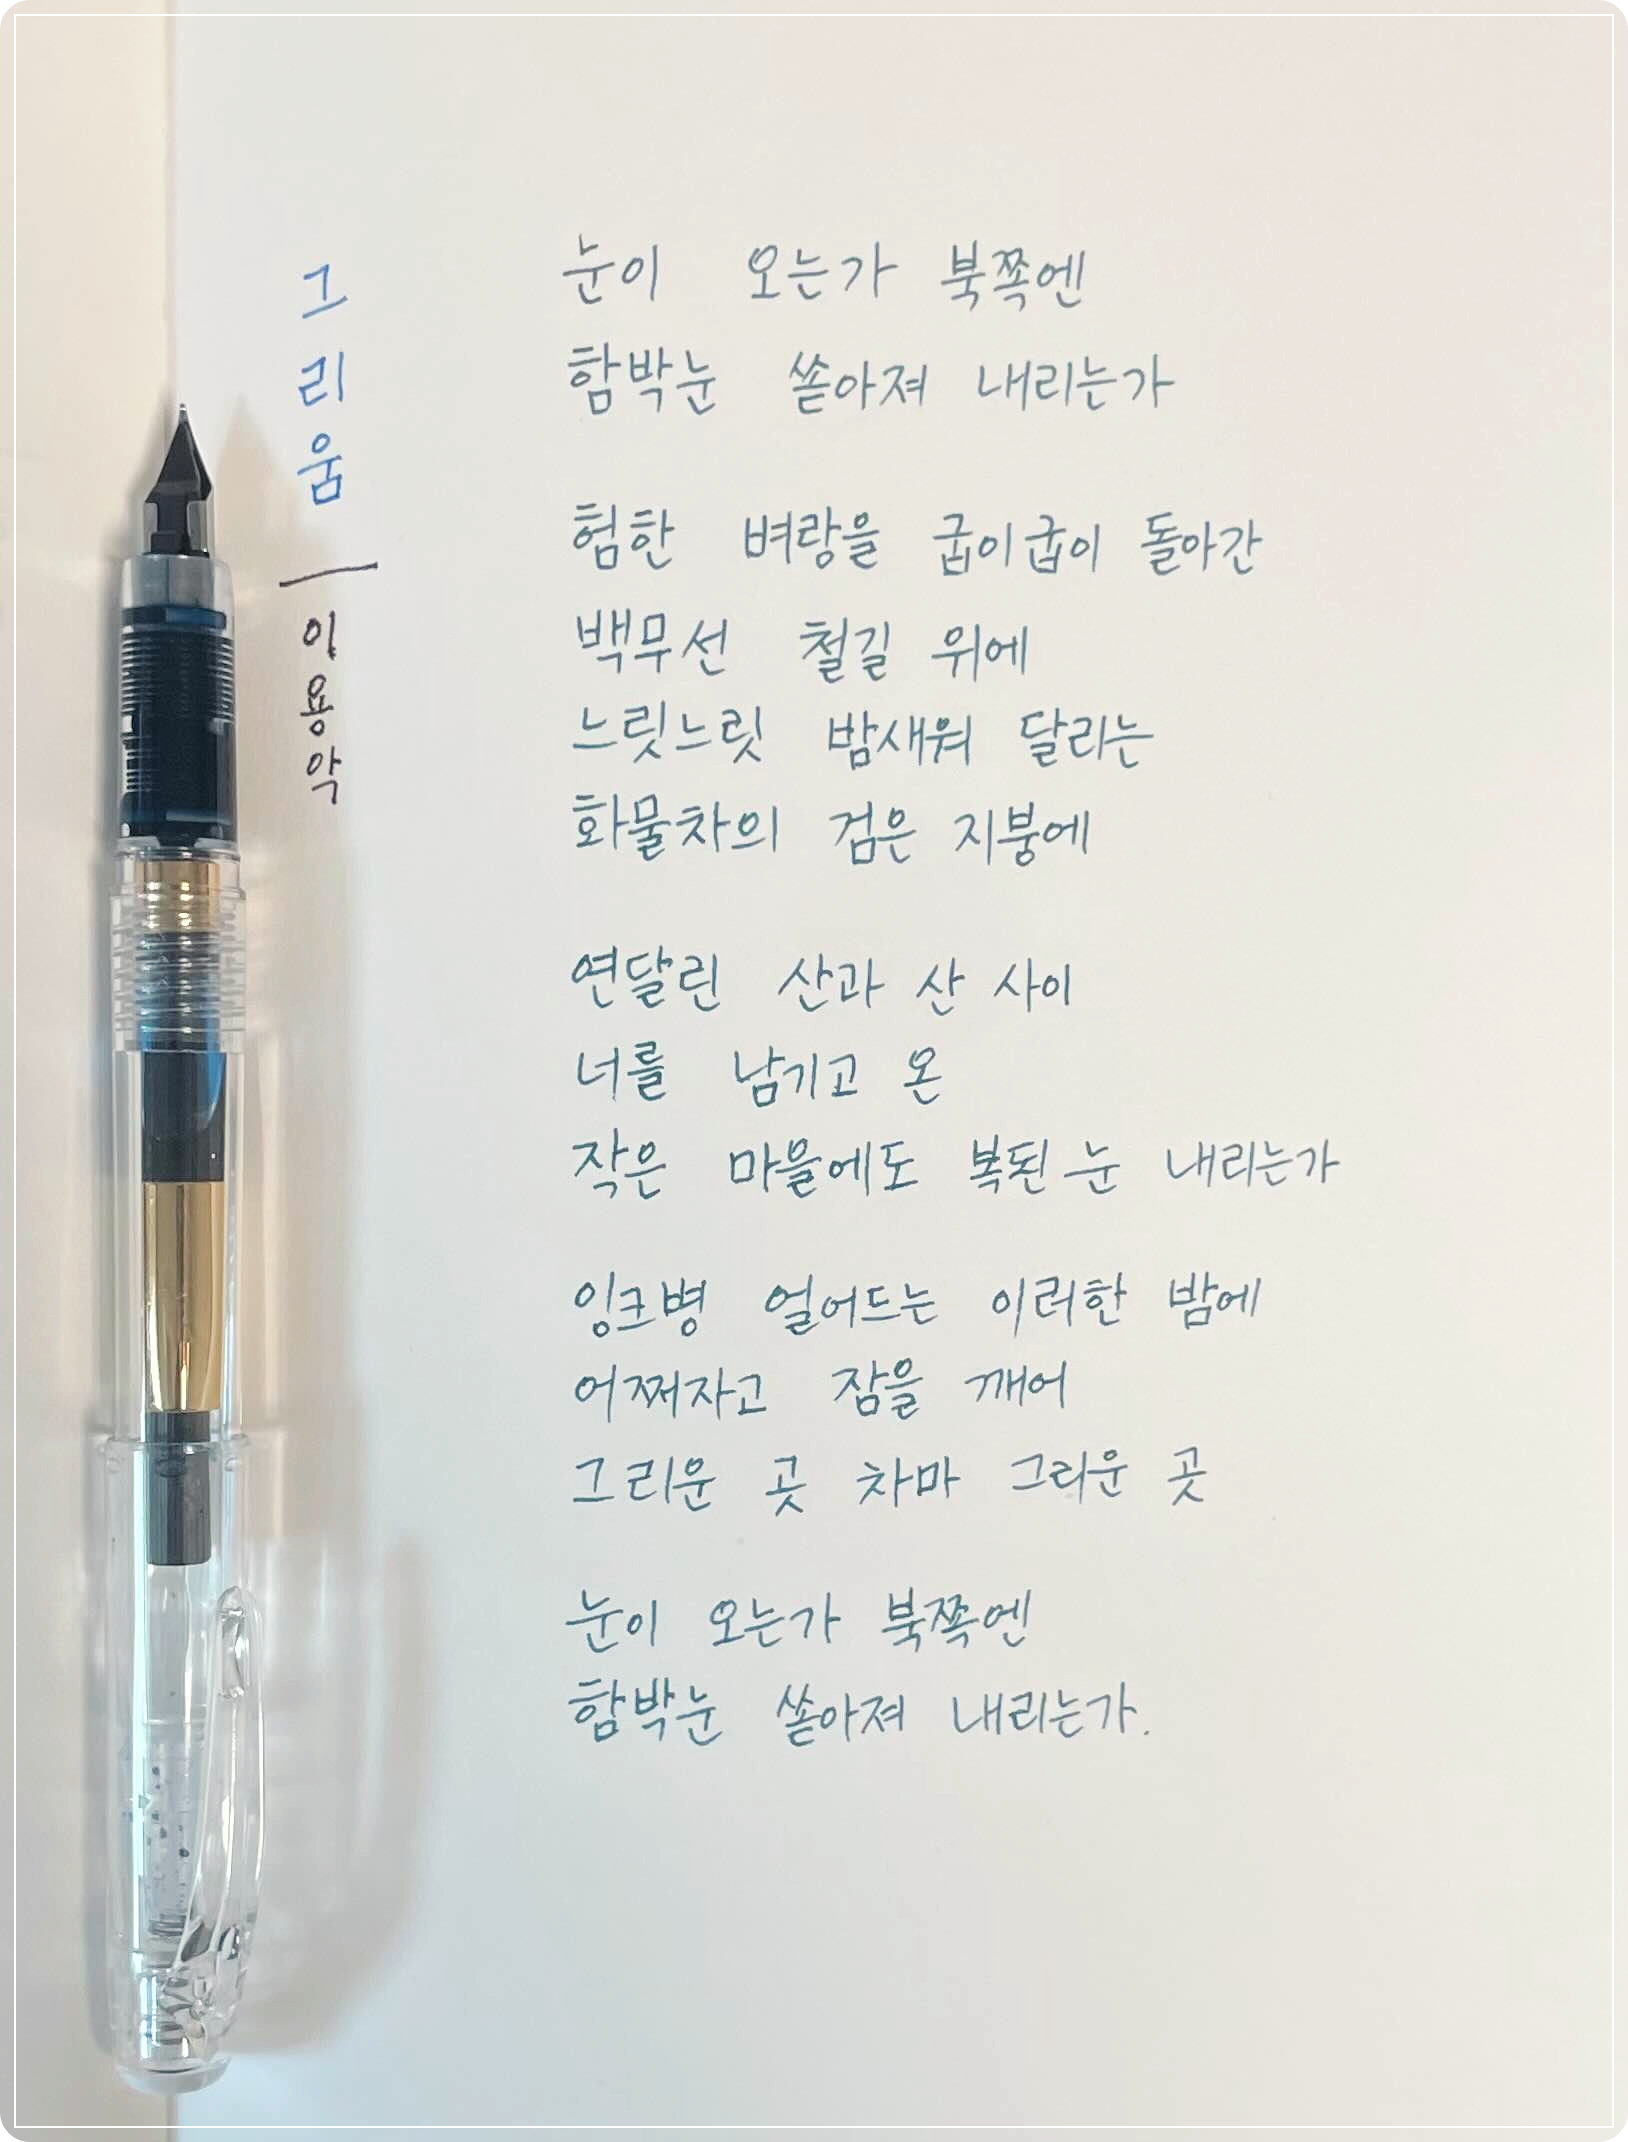 그리움
이용악
눈이 오는가 북쪽엔
함박눈 쏟아져 내리는가
험한 벼랑을 굽이굽이 돌아간
백무선 철길 위에
느릿느릿 밤새워 달리는
화물차의 검은 지붕에
연달린 산과 산 사이
너를 남기고 온
작은 마을에도 복된 눈 내리는가
잉크병 얼어드는 이러한 밤에
어쩌자고 잠을 깨어
그리운 곳 차마 그리운 곳
눈이 오는가 북쪽엔
함박눈 쏟아져 내리는가.